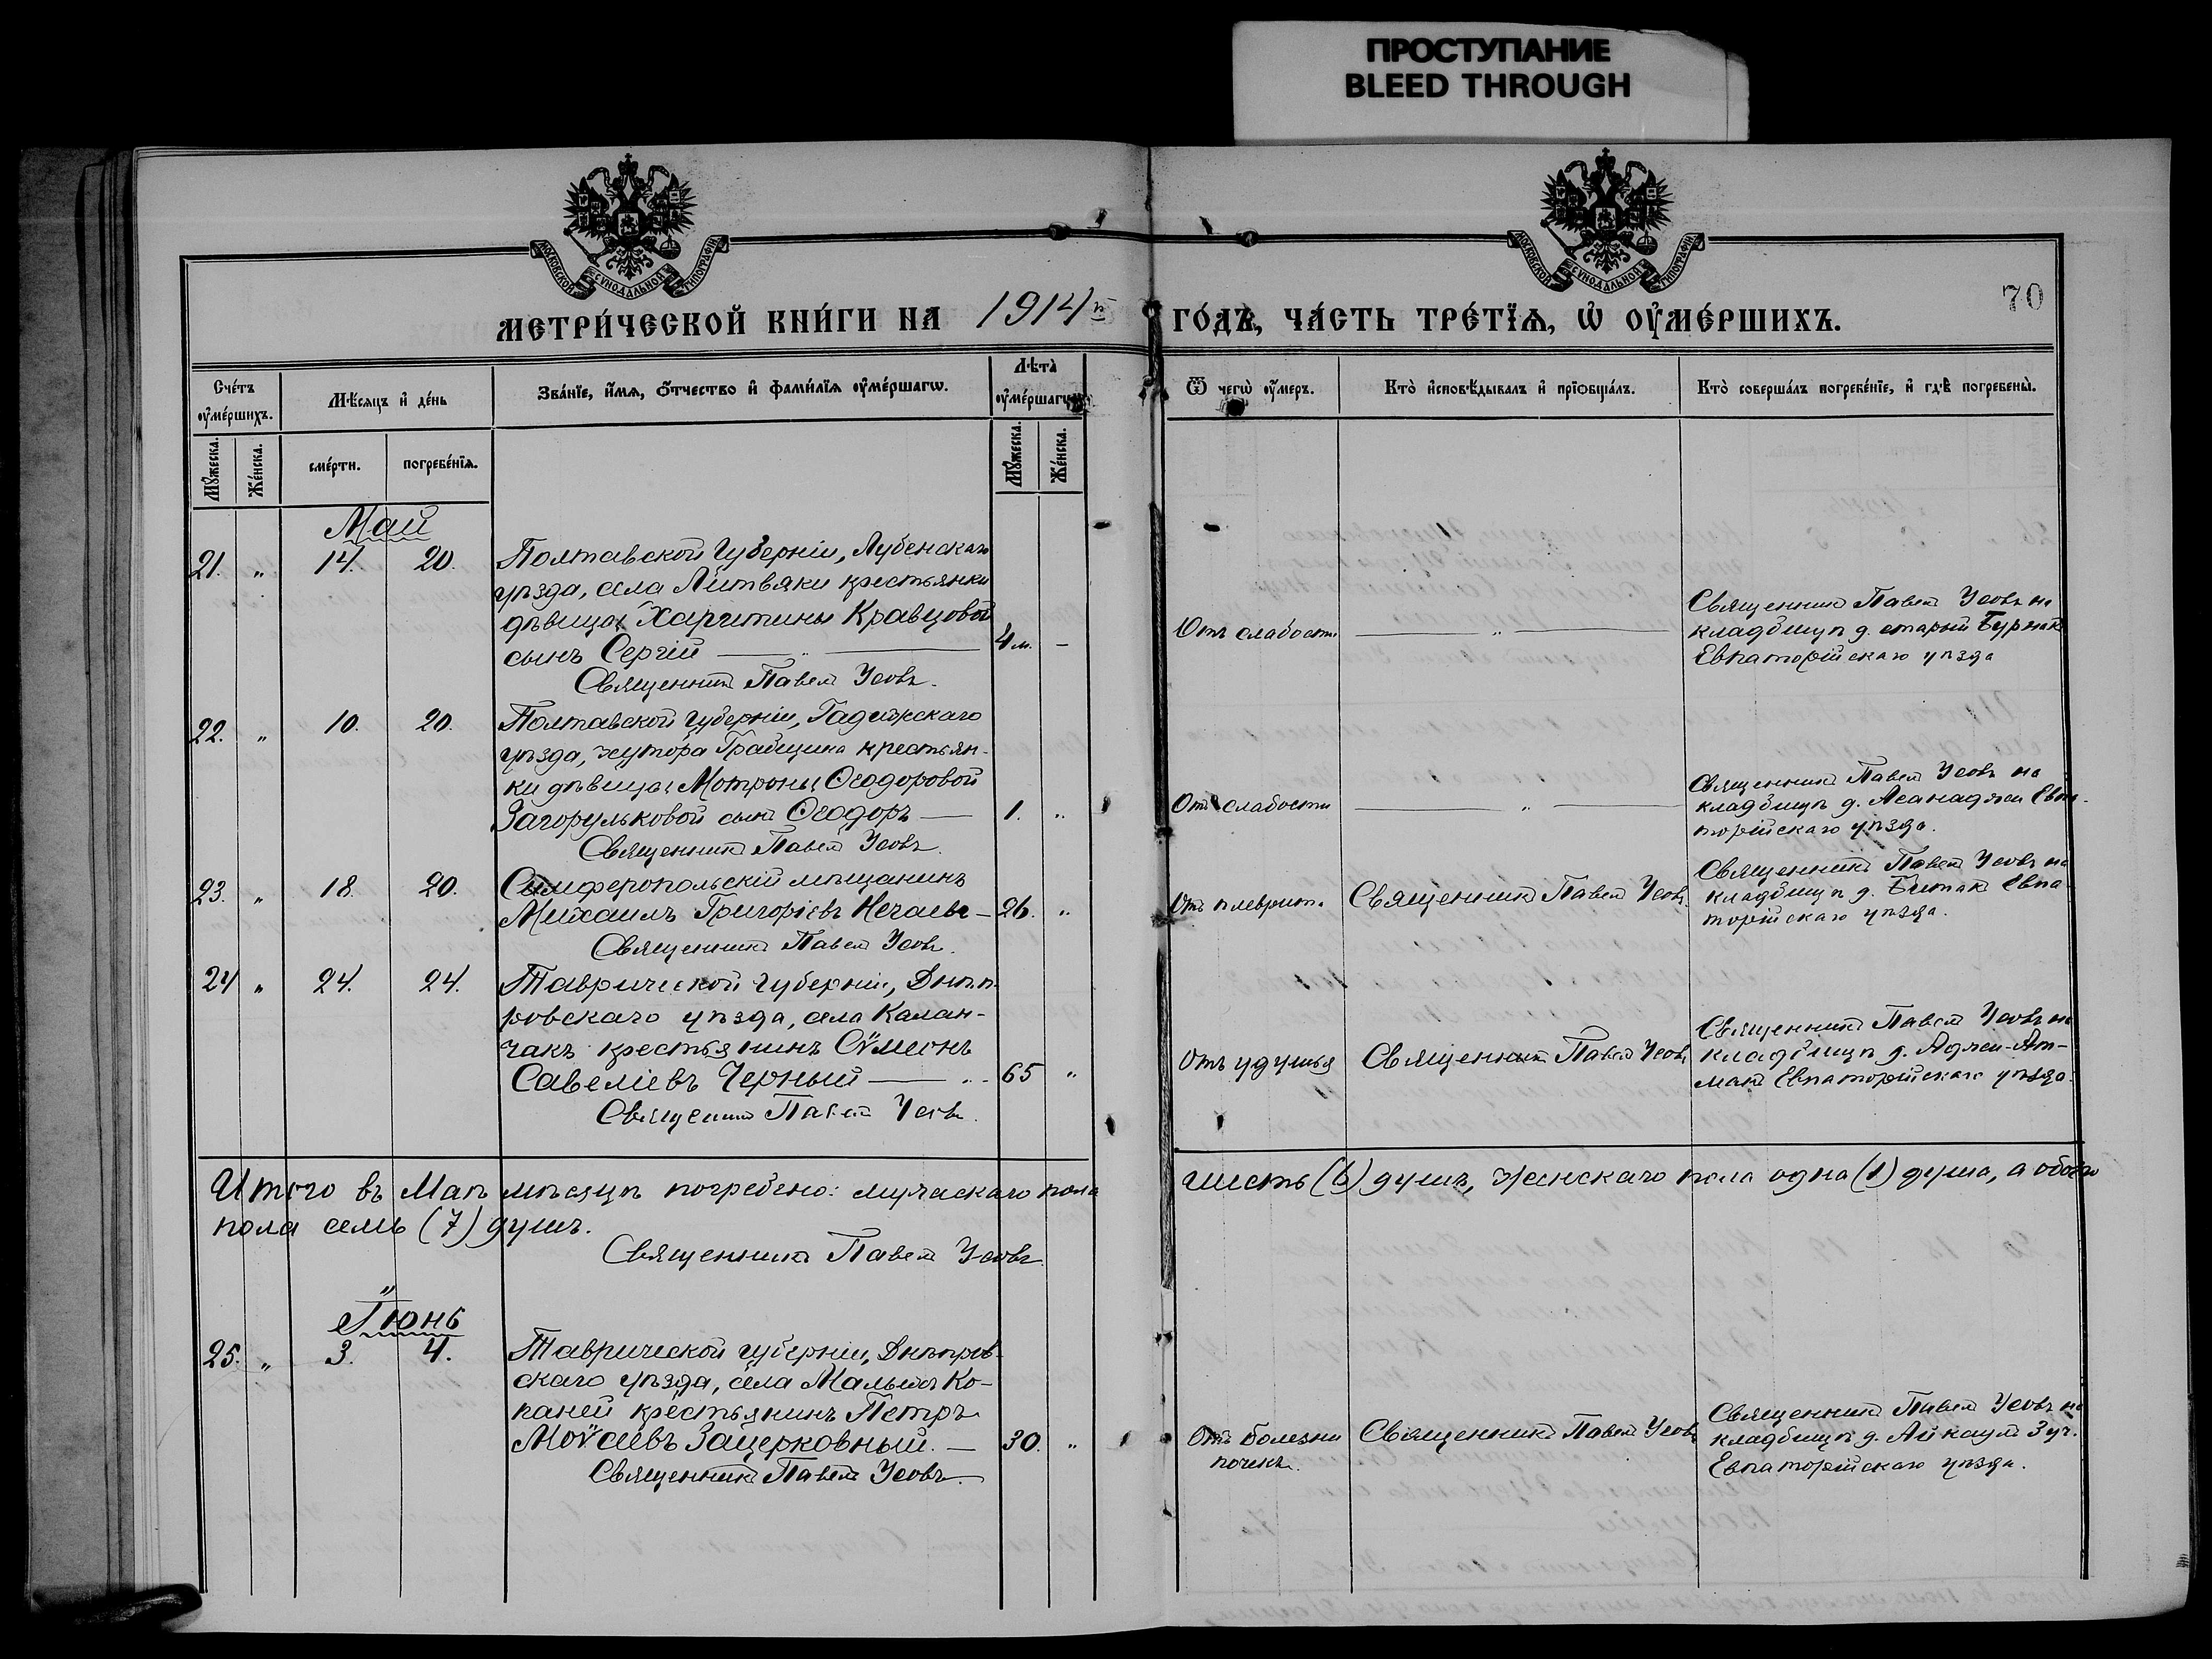 ПРОСТУПАНИЕ
BLEED THROUGH
МОСКОВСКОЙ СУНОДАЛЬНОЙ ТИПОГРАФІИ
МОСКОВСКОЙ СУНОДАЛЬНОЙ ТИПОГРАФІИ
70
МЕТРИ́ЧЕСКОЙ КНИ́ГИ НА 1914 й ГО́ДЪ, ЧА́СТЬ ТРЕ́ТЇѦ, Ѡ ОУМЕ́РШИХЪ.
Сче́тъ оуме́ршихъ.
Мѣ́сяцъ и де́нь
Зва́нїе, и́мя, о́тчество и фами́лїя оуме́ршагѡ.
Лѣта̀ оуме́ршагѡ
Ѿ чегѡ̀ оу́меръ.
Кто̀ исповѣ́дывалъ и прїѡбща́лъ.
Кто̀ соверша́лъ погребе́нїе, и гдѣ̀ погребены̀.
Мꙋ́жеска.
Же́нска.
сме́рти.
погребе́нїя.
Мꙋ́жеска.
Же́нска.
Май
21. " 14. 20. Полтавской губерніи, Лубенскаго
уѣзда, села Литвяки крестьянки
дѣвицы Харитины Кравцовой
сынъ Сергій — " — 4 м. —
Священникъ Павелъ Усовъ.
Отъ слабости — " —
Священникъ Павелъ Усовъ на
кладбищѣ д. старый Бурнакъ
Евпаторійскаго уѣзда
22. " 10. 20. Полтавской губерніи, Гадяжскаго
уѣзда, хутора Грабщина крестьян-
ки дѣвицы Мотроны Ѳеодоровой
Загорульковой сынъ Ѳеодоръ — 1. "
Священникъ Павелъ Усовъ.
Отъ слабости — " —
Священникъ Павелъ Усовъ на
кладбищѣ д. Асанаджи Евпа-
торійскаго уѣзда.
23. " 18. 20. Симферопольскій мѣщанинъ
Михаилъ Григоріевъ Нечаевъ — 26. "
Священникъ Павелъ Усовъ.
Отъ плеврита. Священникъ Павелъ Усовъ.
Священникъ Павелъ Усовъ на
кладбищѣ д. Битакъ Евпа-
торійскаго уѣзда.
24 " 24. 24. Таврической губерніи, Днѣп-
ровскаго уѣзда, села Калан-
чакъ крестьянинъ Сѵмеонъ
Савеліевъ Черный — 65 "
Священникъ Павелъ Усовъ.
Отъ удушья Священникъ Павелъ Усовъ
Священникъ Павелъ Усовъ на
кладбищѣ д. Аджи-Ат-
манъ Евпаторійскаго уѣзда.
Итого въ Маѣ мѣсяцѣ погребено: мужескаго пола шесть (6) душъ, женскаго пола одна (1) душа, а обоего
пола семь (7) душъ.
Священникъ Павелъ Усовъ
Іюнь
25. " 3. 4. Таврической губерніи, Днѣпров-
скаго уѣзда, села Малыхъ Ко-
паней крестьянинъ Петръ
Моѵсеевъ Зацерковный. — 30. "
Священникъ Павелъ Усовъ.
Отъ болезни
почекъ.
Священникъ Павелъ Усовъ
Священникъ Павелъ Усовъ на
кладбищѣ д. Айкаулъ 3 уч.
Евпаторійскаго уѣзда.